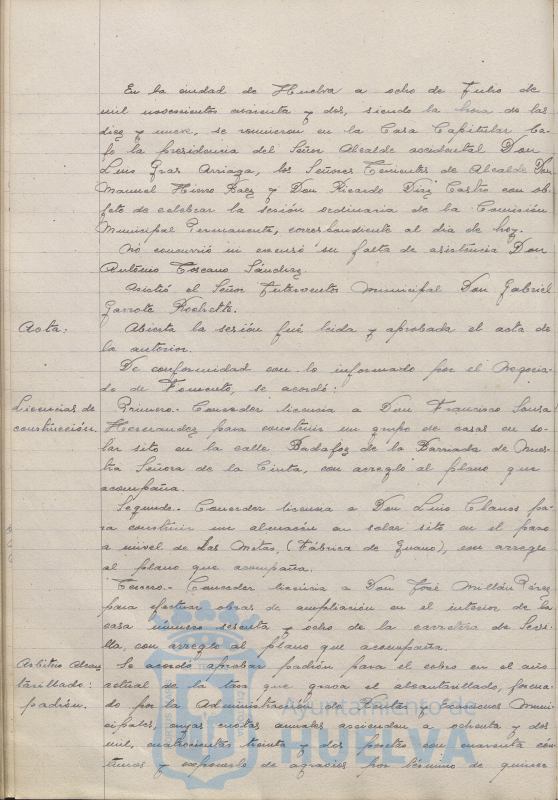 En la ciudad de Huelva a ocho de Julio de
mil novecientos cuarenta y dos, siendo la hora de las
diez y nueve, se reunieron en la Casa Capitular ba-
jo la presidencia del Señor Alcalde accidental Don
Luis Gras Arriaga, los Señores Tenientes de Alcalde Don
Manuel Hierro Baez y Don Ricardo Diaz Castro con ob-
jeto de celebrar la sesión ordinaria de la Comisión
Municipal Permanente, correspondiente al día de hoy.
No concurrió ni excusó su falta de asistencia Don
Antonio Toscano Sánchez.
Asistió el Señor Interventor Municipal Don Gabriel
Garrote
Acta: Abierta la sesión fué leida y aprobada el acta de
la anterior.
De conformidad con lo informado por el Negocia-
do de Fomento, se acordó:
Licencias de Primero.- Conceder licencia a Don Francisco Sousa
construcción. Hernandez para construir un grupo de casas en so-
lar sito en la calle Badajoz de la Barriada de Nues-
tra Señora de la Cinta, con arreglo al plano que
acompaña.
Segundo.- Conceder licencia a Don Luis Clauss pa-
ra construir un almacén en solar sito en el paso
a nivel de Las Metas, (Fábrica de Guano), con arreglo
al plano que acompaña.
Tercero.- Conceder licencia a Don José Millán Pérez
para efectuar obras de ampliación en el interior de la
casa número sesenta y ocho de la carretera de Sevi-
lla, con arreglo al plano que acompaña.
Arbitrio Alcan- Se acordó aprobar padrón para el cobro en el año
tarillado: actual de la tasa que grava el alcantarillado, forma-
padrón. do por la Administración de Rentas y Exacciones Muni-
cipales, cuyas cuotas anuales ascienden a ochenta y dos
mil, cuatrocientas treinta y dos pesetas con cuarenta cén-
timos y exponerlo de agravios por término de quince
Ayuntamiento de
HUELVA